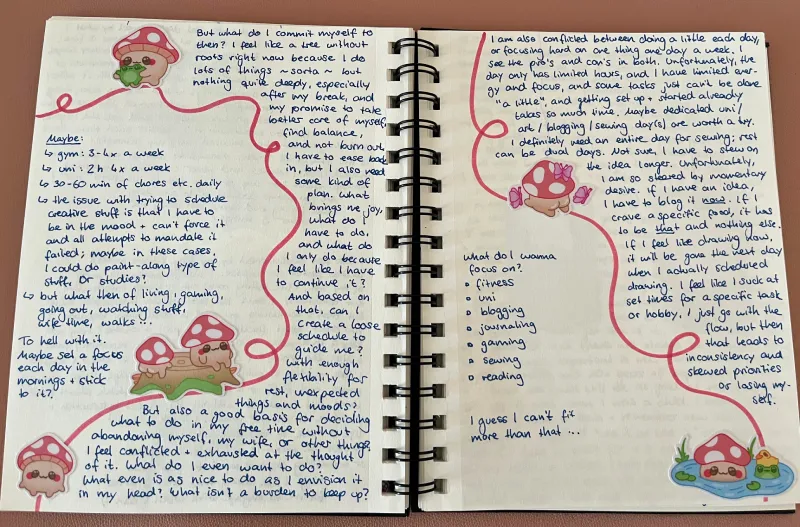 But what do I commit myself to
then? I feel like a tree without
roots right now because I do
lots of things ~ sorta ~ but
nothing quite deeply, especially
after my break, and
my promise to take
better care of myself,
find balance,
and not burn out.
I have to ease back
in, but I also need
some kind of
plan. What
brings me joy,
what do I
have to do,
and what do
I only do because
I feel like I have
to continue it?
And based on
that, can I
create a loose
schedule to
guide me?
With enough
flexibility for
rest, unexpected
things and moods?
Maybe:
↳ gym: 3-4x a week
↳ uni: 2h 4x a week
↳ 30-60 min of chores etc. daily
↳ the issue with trying to schedule
creative stuff is that I have to
be in the mood + can't force it
and all attempts to mandate it
failed; maybe in these cases,
I could do paint-along type of
stuff. Or studies?
↳ but what then of living, gaming,
going out, watching stuff,
wife time, walks ...
To hell with it.
Maybe set a focus
each day in the
mornings + stick
to it?
But also a good basis for deciding
what to do in my free time without
abandoning myself, my wife, or other things.
I feel conflicted + exhausted at the thought
of it. What do I even want to do?
What even is as nice to do as I envision it
in my head? What isn't a burden to keep up?
I am also conflicted between doing a little each day,
or focusing hard on one thing one day a week. I
see the pro's and con's in both. Unfortunately, the
day only has limited hours, and I have limited ener-
gy and focus, and some tasks just can't be done
"a little", and getting set up + started already
takes so much time. Maybe dedicated uni/
art/blogging/sewing day(s) are worth a try.
I definitely need an entire day for sewing; rest
can be dual days. Not sure, I have to stew on
the idea longer. Unfortunately,
I am so steered by momentary
desire. If I have an idea,
I have to blog it now. If I
crave a specific food, it has
to be that and nothing else.
If I feel like drawing now,
it will be gone the next day
when I actually scheduled
drawing. I feel like I suck at
set times for a specific task
or hobby, I just go with the
flow, but then
that leads to
inconsistency and
skewed priorities
or losing my-
self.
What do I wanna
focus on?
• fitness
• uni
• blogging
• journaling
• gaming
• sewing
• reading
I guess I can't fit
more than that ...